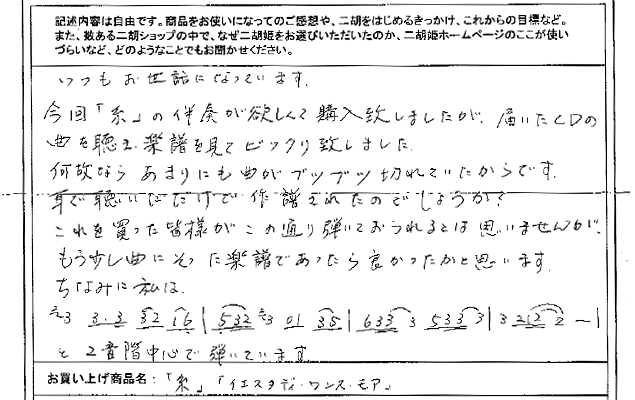 記述内容は自由です。商品をお使いになってのご感想や、二胡をはじめるきっかけ、これからの目標など。
また、数ある二胡ショップの中で、なぜ二胡姫をお選びいただいたのか、二胡姫ホームページのここが使い
づらいなど、どのようなことでもお聞かせください。
いつもお世話になっています.
今回「糸」の伴奏が欲しくて購入致しましたが、届いたCDの
曲を聴き楽譜を見てビックリ致しました.
何故なら あまりにも曲がブツブツ切れていたからです.
耳で聴いただけで作譜されたのでしょうか?
これを買った皆様がこの通り弾いておられるとは思いませんが、
もう少し曲にそった楽譜であったら良かったかと思います.
ちなみに私は.
3 3・3 32 16 | 532 3 01 35 | 633 3 533 3 | 3 212 2 ー |
と 2音階中心で弾いています
お買い上げ商品名:「糸」「イエスタデイ・ワンス・モア」